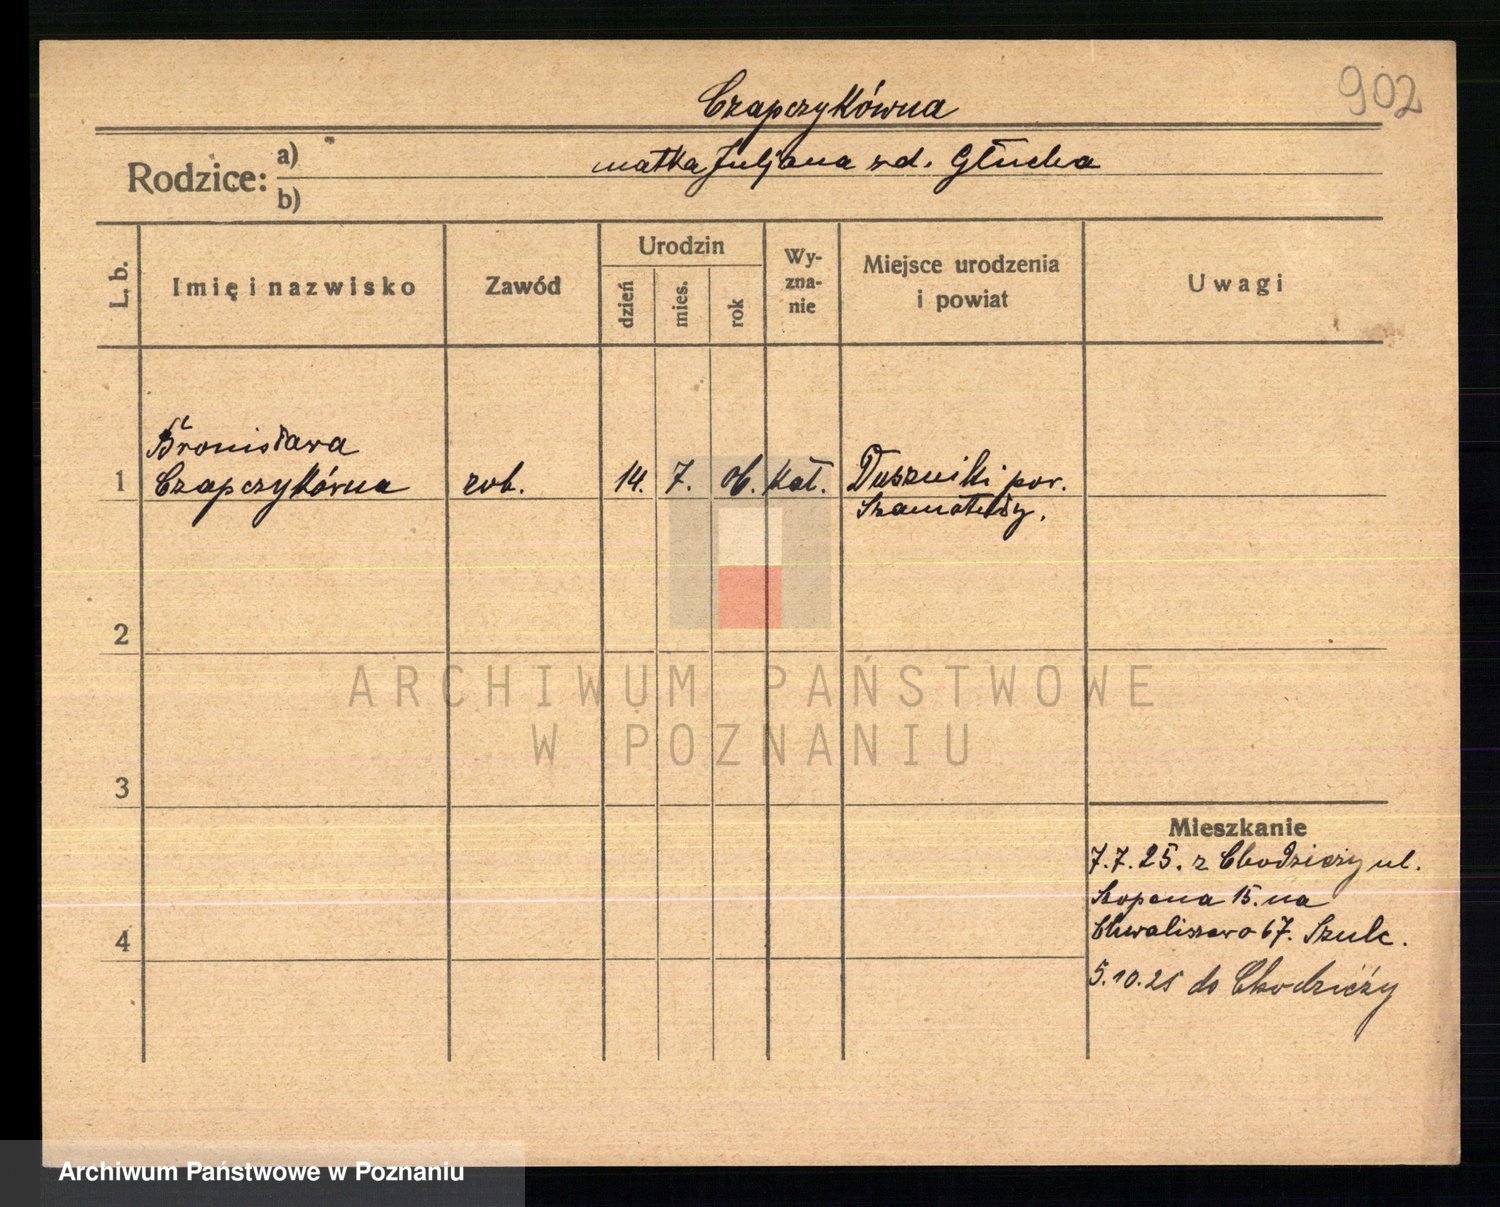 902
Czapczykówna
Rodzice: a) matka Juljana zd. Głucha
b)
L. b.
Imię i nazwisko
Zawód
Urodzin
dzień
mies.
rok
Wy-
zna-
nie
Miejsce urodzenia
i powiat
Uwagi
Bronisława
1 Czapczykówna rob. 14. 7. 06. kat. Duszniki pow.
Szamotuły.
2
3
4
ARCHIWUM PAŃSTWOWE
W POZNANIU
Mieszkanie
7.7.25. z Chodzieży ul.
Szopena 15. na
Chwaliszewo 67. Szulc.
5.10.25 do Chodzieży
Archiwum Państwowe w Poznaniu